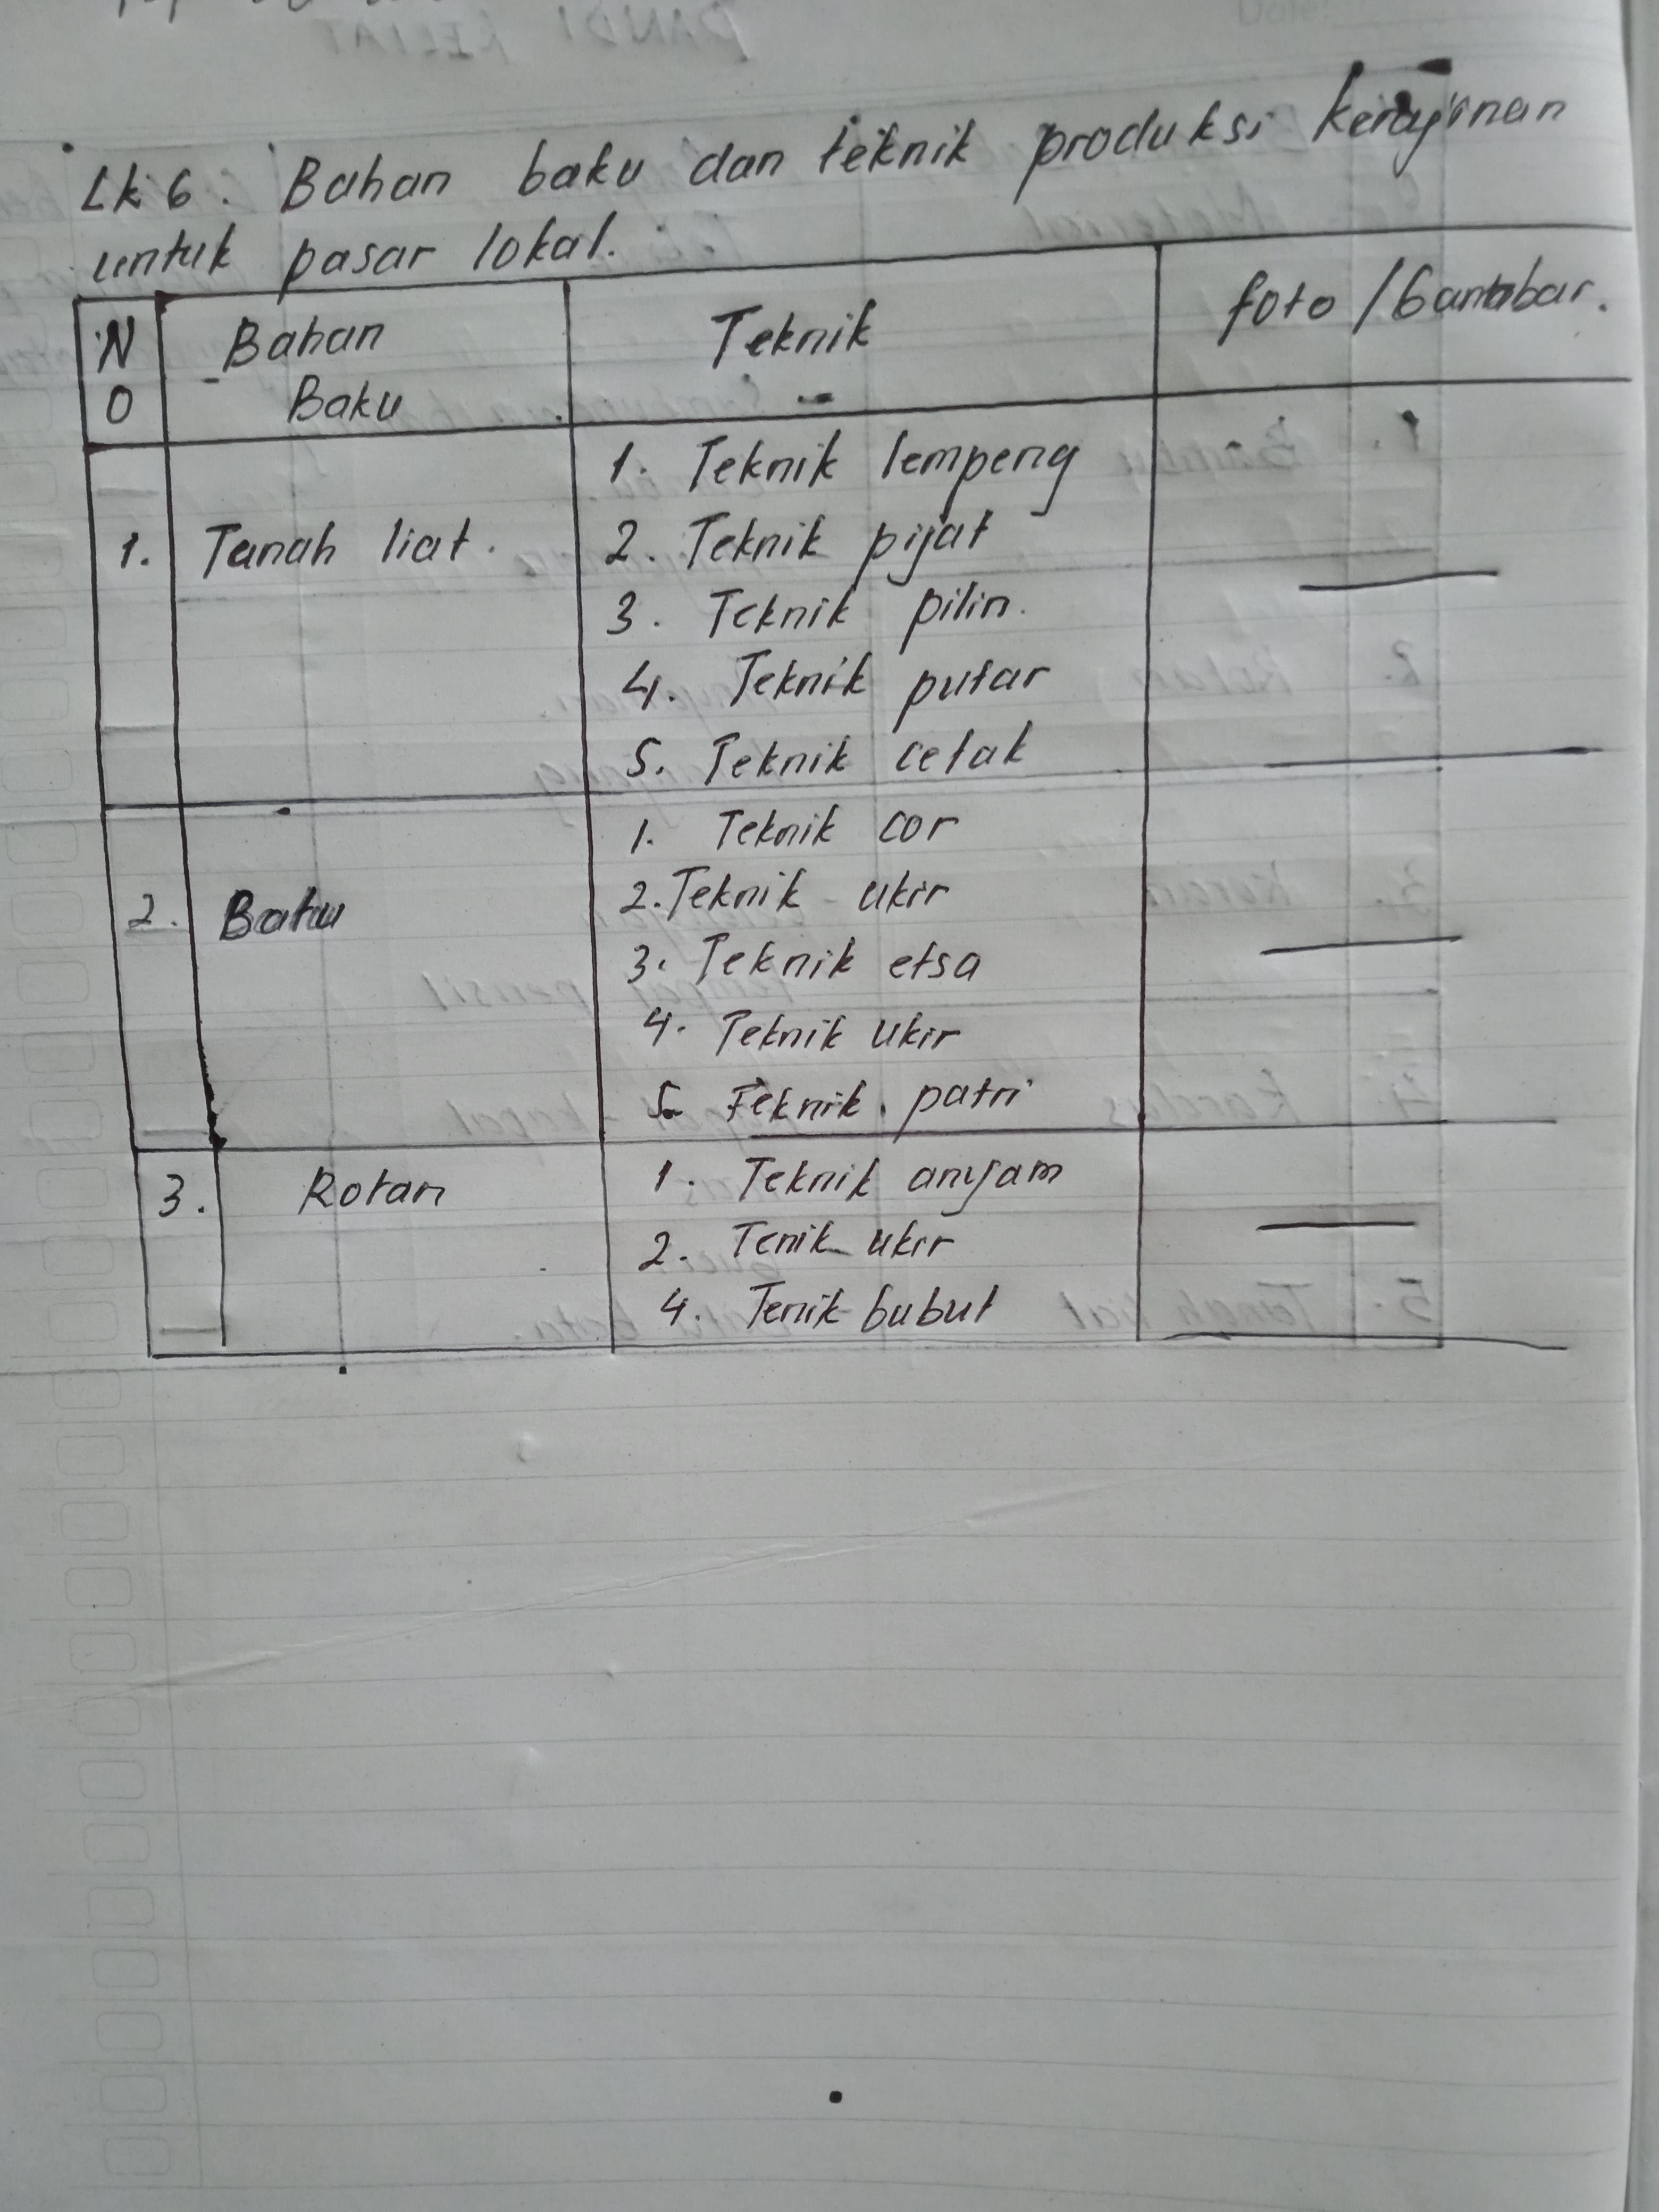 Lk 6. Bahan baku dan teknik produksi kerajinan
untuk pasar lokal.
NO Bahan Baku Teknik foto / Gambar.
1. Teknik lempeng
1. Tanah liat. 2. Teknik pijat
3. Teknik pilin.
4. Teknik putar
5. Teknik cetak
1. Teknik cor
2. Batu 2. Teknik ukir
3. Teknik etsa
4. Teknik ukir
5. Teknik patri
3. Rotan 1. Teknik anyam
2. Tenik ukir
4. Tenik bubut